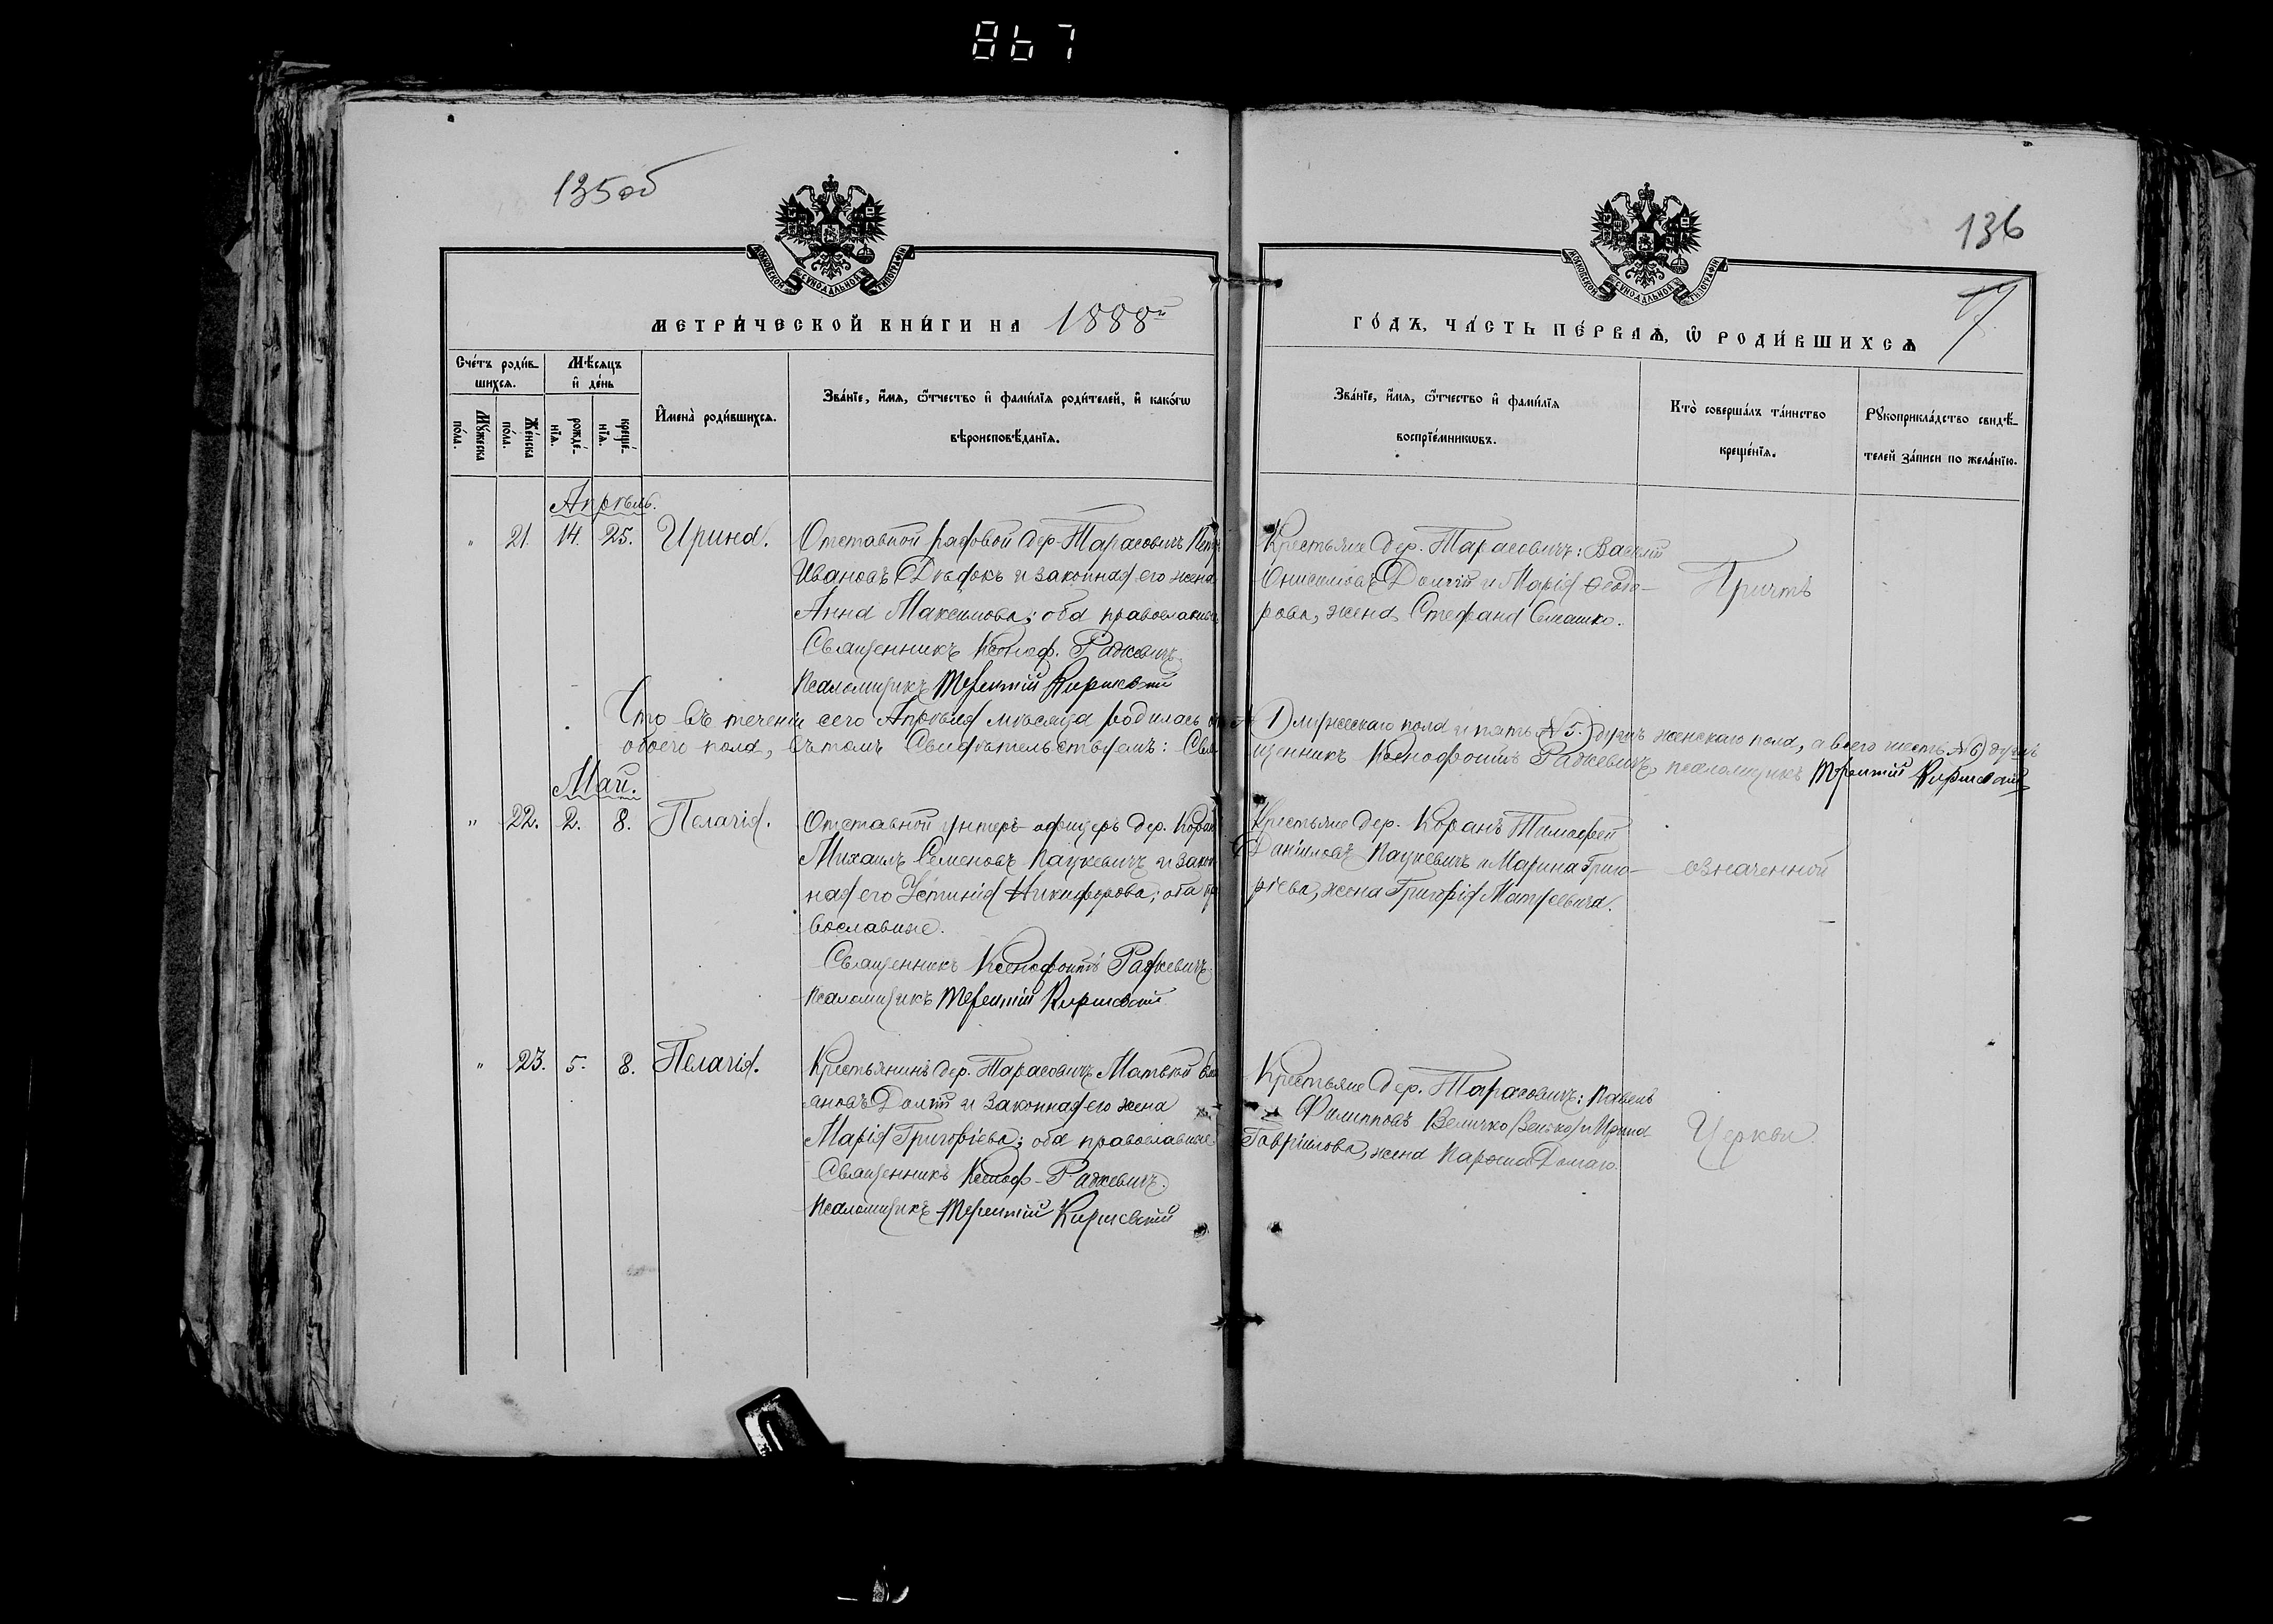 867
135об
136
МОСКОВСКОЙ СѴНОДАЛЬНОЙ ТИПОГРАФІИ
МОСКОВСКОЙ СѴНОДАЛЬНОЙ ТИПОГРАФІИ
МЕТРИ́ЧЕСКОЙ КНИ́ГИ НА 1888й
ГО́ДЪ, ЧА́СТЬ ПЕ́РВАѦ, Ѿ РОДИ́ВШИХСѦ
Сче́тъ роди́в-
шихсѧ.
Мѣ́сѧцъ
и҆ де́нь
Мꙋ́жеска
по́ла.
Же́нска
по́ла.
рожде́-
нїѧ.
креще́-
нїѧ.
И҆мена̀ роди́вшихсѧ.
Зва́нїе, и҆́мѧ, ѻ҆́тчество и҆ фами́лїѧ роди́телей, и҆ како́гѡ
вѣроисповѣ́данїѧ.
Зва́нїе, и҆́мѧ, ѻ҆́тчество и҆ фами́лїѧ
воспрїе́мникѡвъ.
Кто̀ соверша́лъ та́инство
креще́нїѧ.
Рꙋкоприкла́дство свидѣ́-
телей за́писи по жела́нїю.
Апрѣль.
" 21. 14. 25. Ирина. Отставной рядовой дер. Тарасовичъ Петръ
Ивановъ Дѣдокъ и законная его жена
Анна Максимова; оба православные
Священникъ Ксеноф. Радкевичъ.
Псаломщикъ Терентій
Крестьяне дер. Тарасовичъ: Василій
Онисимовъ Долгій и Марія Ѳеодо-
рова, жена Стефана Семашко.
Причтъ
Что въ теченіи сего Апрѣля мѣсяца родилась 1) мужескаго пола и пять №5.) душъ женскаго пола, а всего шесть №6) душъ
обоего пола, въ томъ свидѣтельствуемъ: Священникъ Ксенофонтъ Радкевичъ, псаломщикъ Терентій
Май.
" 22. 2. 8. Пелагія. Отставной унтеръ-офицеръ дер. Коранъ
Михаилъ Семеновъ Пацкевичъ и закон
ная его Устинія Никифорова; оба пра
вославные.
Священникъ Ксенофонтъ Радкевичъ
Псаломщикъ Терентій
Крестьяне дер. Коранъ Тимоѳей
Даніиловъ Пацкевичъ и Марина Григо-
рієва, жена Григорія Матусевича.
означенной
" 23. 5. 8. Пелагія. Крестьянинъ дер. Тарасовичъ Матвѣй
Долгій и законная его жена
Марія Григоріева; оба православные.
Священникъ Ксеноф. Радкевичъ.
Псаломщикъ Терентій
Крестьяне дер. Тарасовичъ: Павелъ
Филипповъ Величко и Ирина
Гавріилова, жена Долгаго.
Церкви.